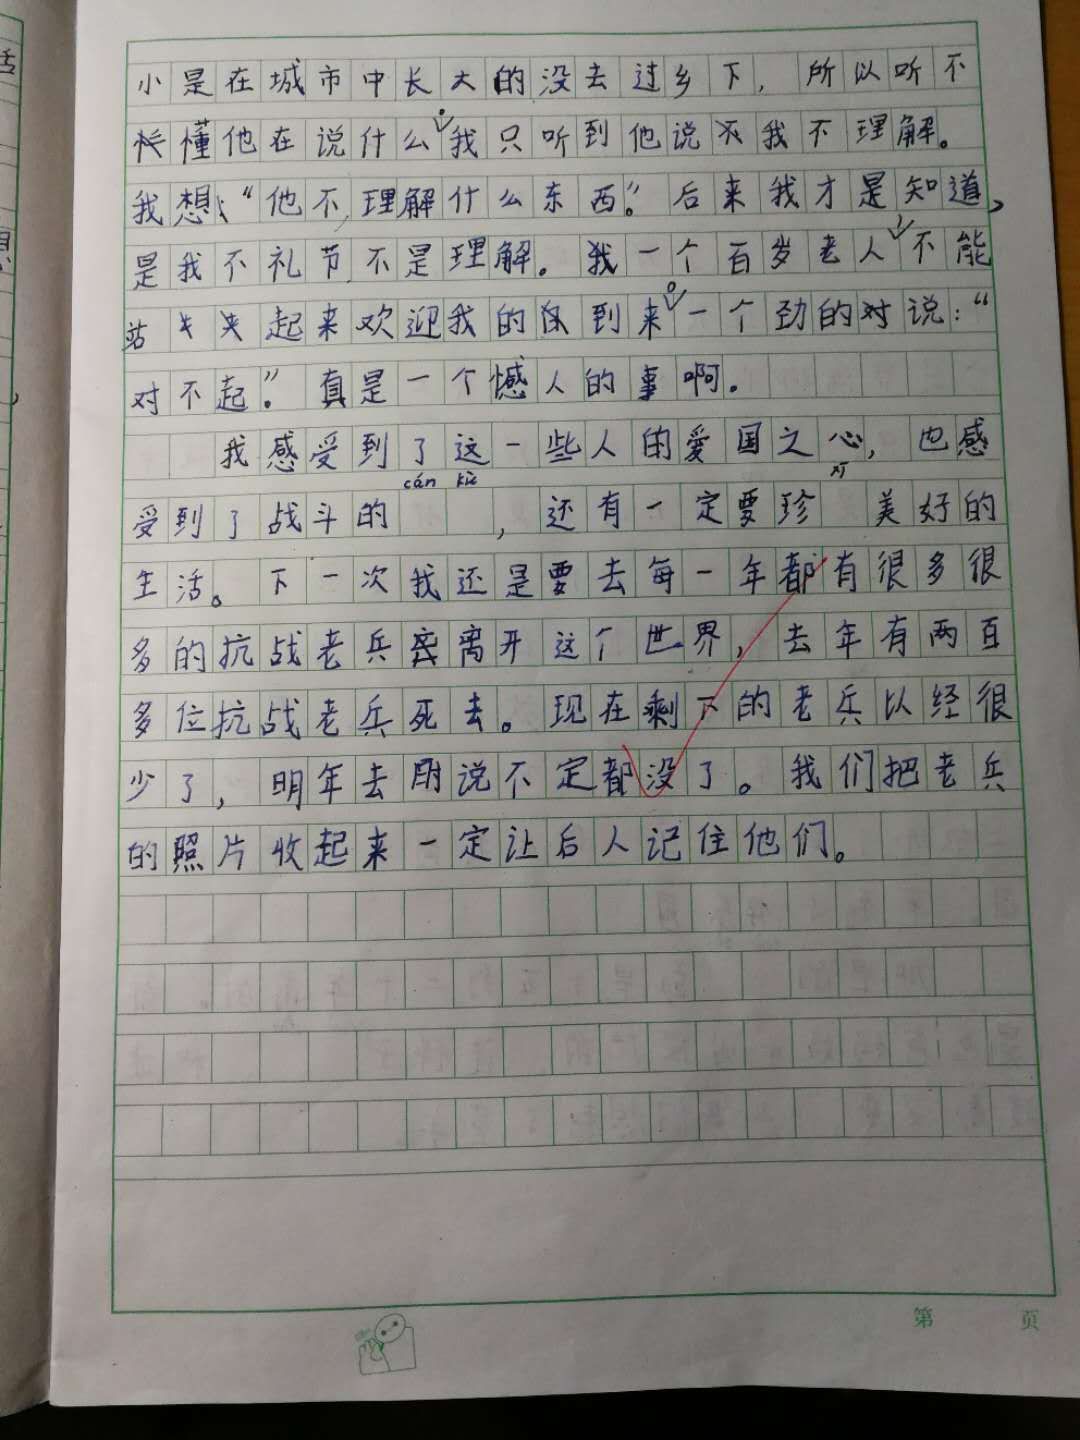 小是在城市中长大的没去过乡下，所以听不
懂他在说什么。我只听到他说我不理解。
我想“他不理解什么东西”。后来我才是知道，
是我不礼节不是理解。我一个百岁老人，不能
站起来欢迎我的到来。一个劲的对说：“
对不起”。真是一个憾人的事啊。
我感受到了这一些人的爱国之心，也感
受到了战斗的cán kù，还有一定要珍xī美好的
生活。下一次我还是要去每一年都有很多很
多的抗战老兵离开这个世界，去年有两百
多位抗战老兵死去。现在剩下的老兵以经很
少了，明年去说不定都没了。我们把老兵
的照片收起来一定让后人记住他们。
第 页